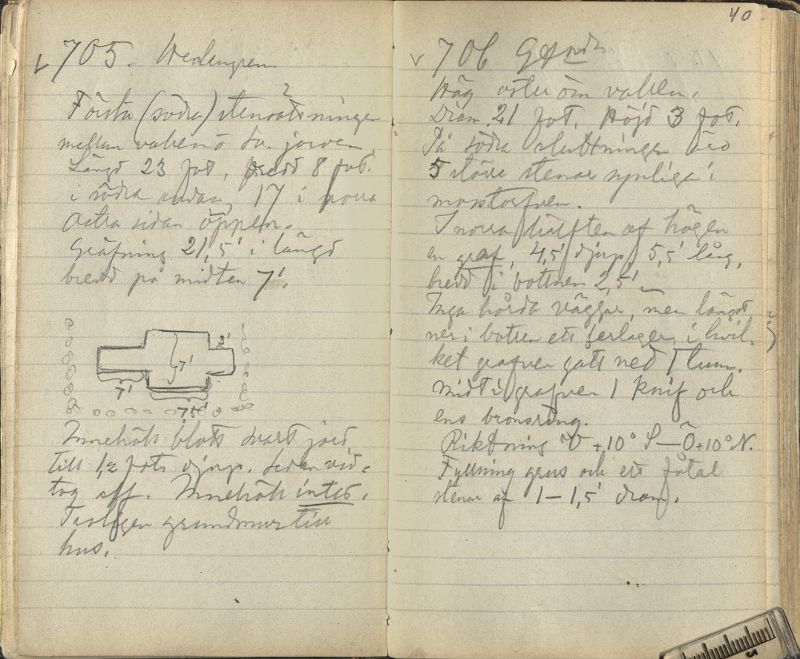 705. Wedengren
Första (södra) stensättningen
mellan vallen o
Längd 23 fot, bredd 8 fot.
i södra ändan, 17 i norra
Östra sidan öppen.
Gräfning 21,5' i längd
bredd på midten 7'.
3'
7'
7'
7,5'
Innehöll blott svart jord
till 1,2 fots djup. Sedan vid-
tog alf. Innehöll intet.
Troligen grundmur till
hus.
40
706
Hög öster om vallen.
Diam. 21 fot. Höjd 3 fot.
På södra sluttningen äro
5 större stenar synliga i
mostorfven.
I norra hälften af högen
en graf, 4,5' djup, 5,5' lång,
bredd i bottnen 2,5'.
Inga hårda väggar, men längst
ner i botten ett lerlager, i hvil-
ket grafven gått ned 1 tum.
Midt i grafven 1 knif och
ens bronsring.
Riktning V +10° S — Ö +10° N.
Fyllning grus och ett fåtal
stenar af 1 – 1,5' diam.